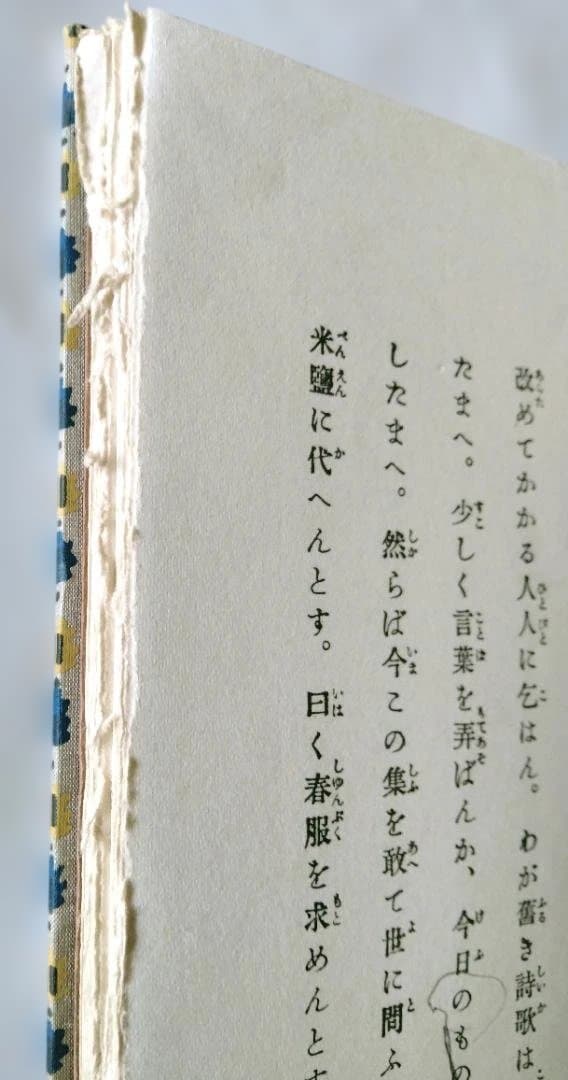 改めてかかる人人に乞はん。わが舊き詩歌は
たまへ。少しく言葉を弄ばんか、今日のもの
したまへ。然らば今この集を敢て世に問ふ
米鹽に代へんとす。曰く春服を求めんとす